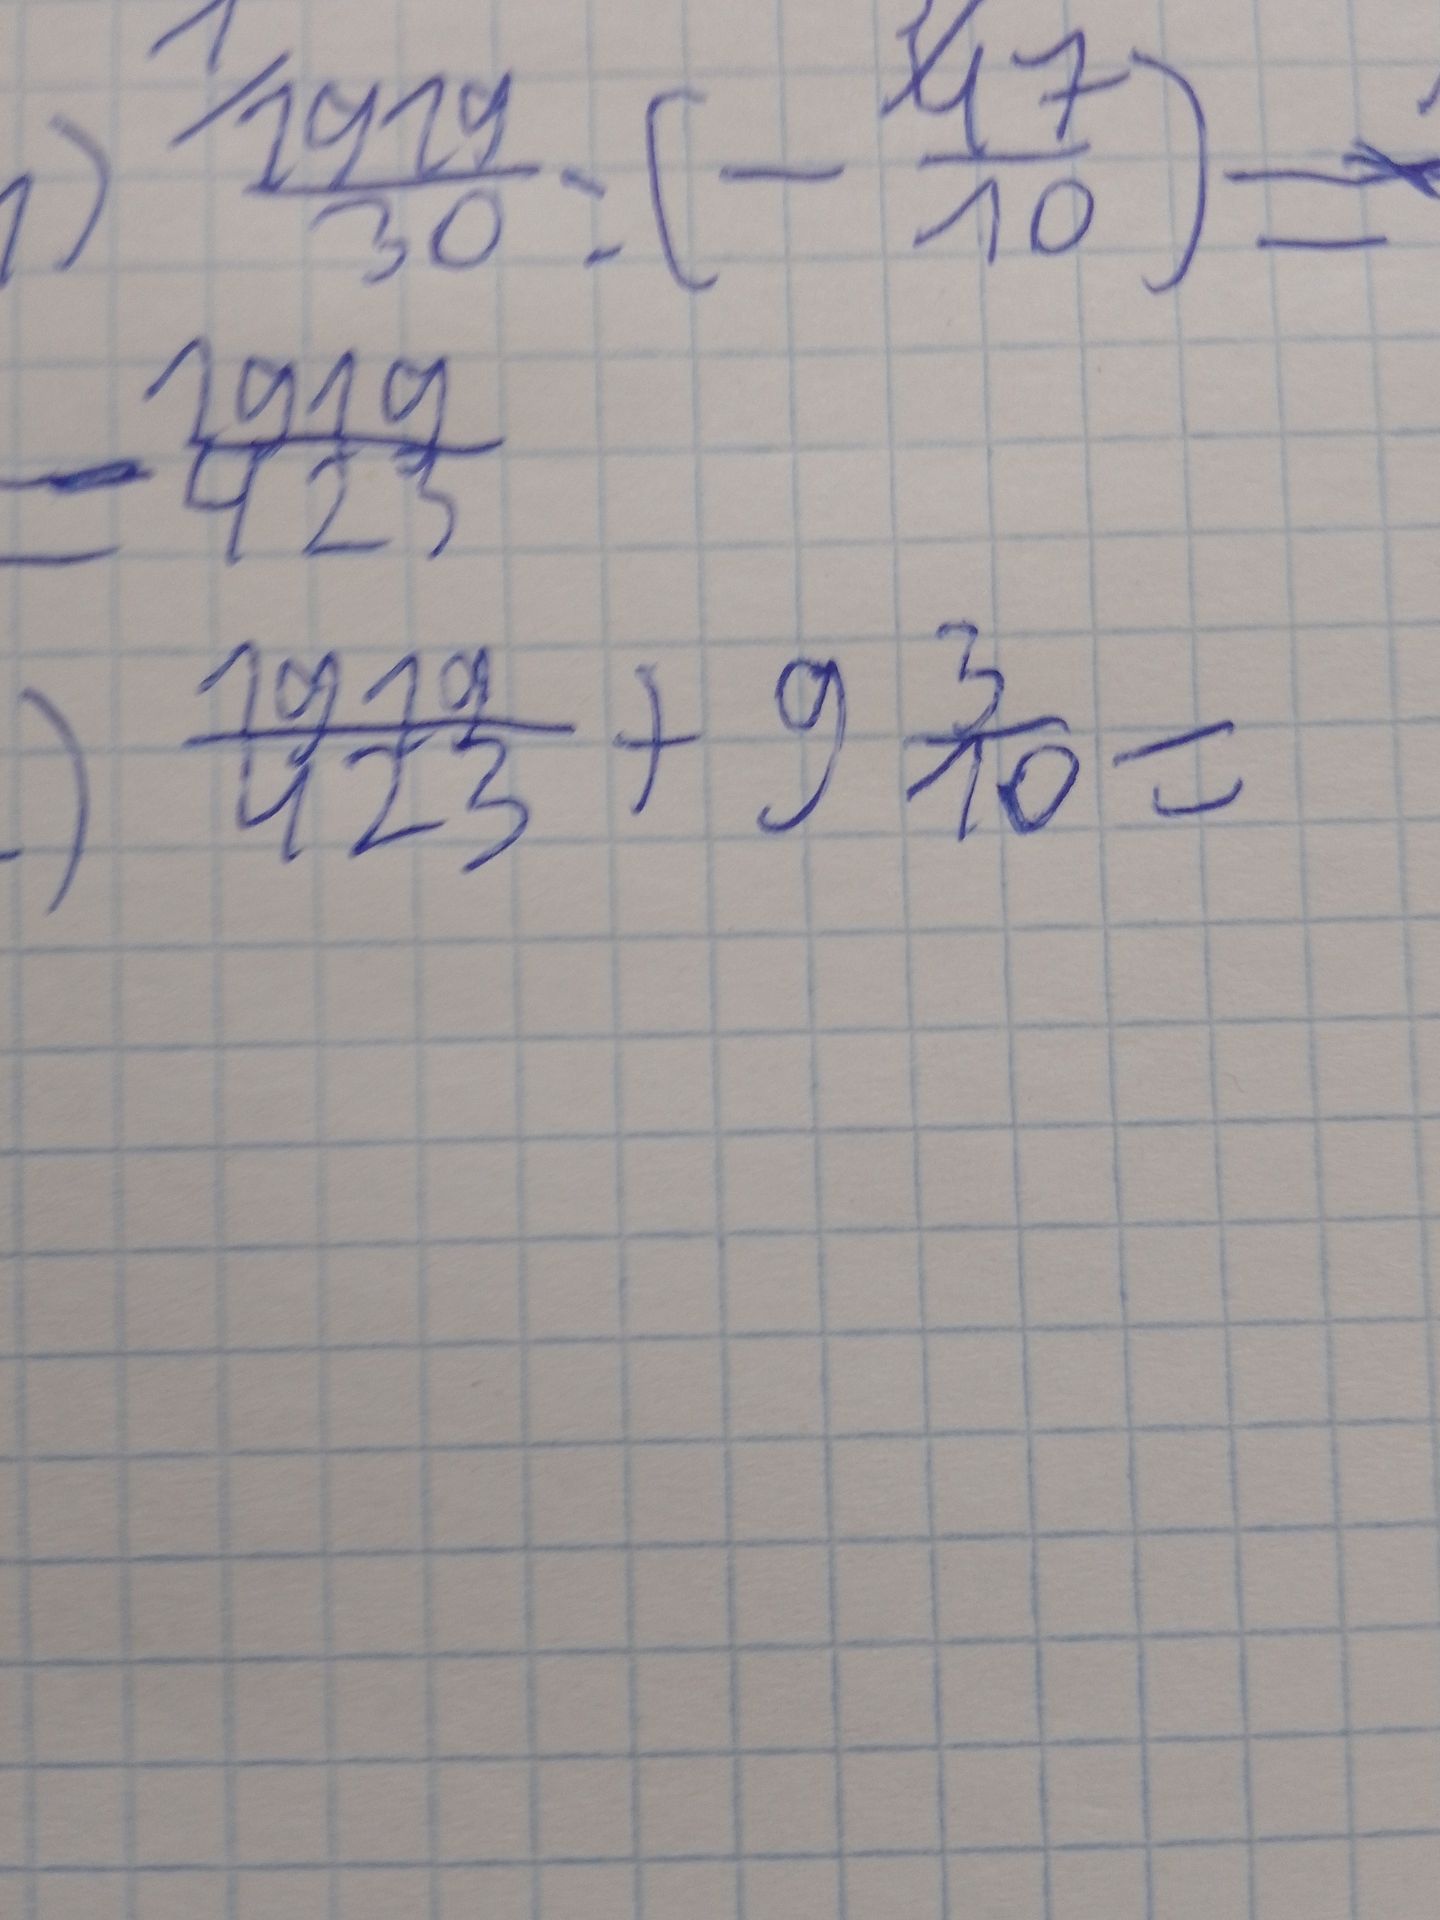 1) 1919/30 : (- 47/10) =
= - 1919/423
) 1919/423 + 9 3/10 =